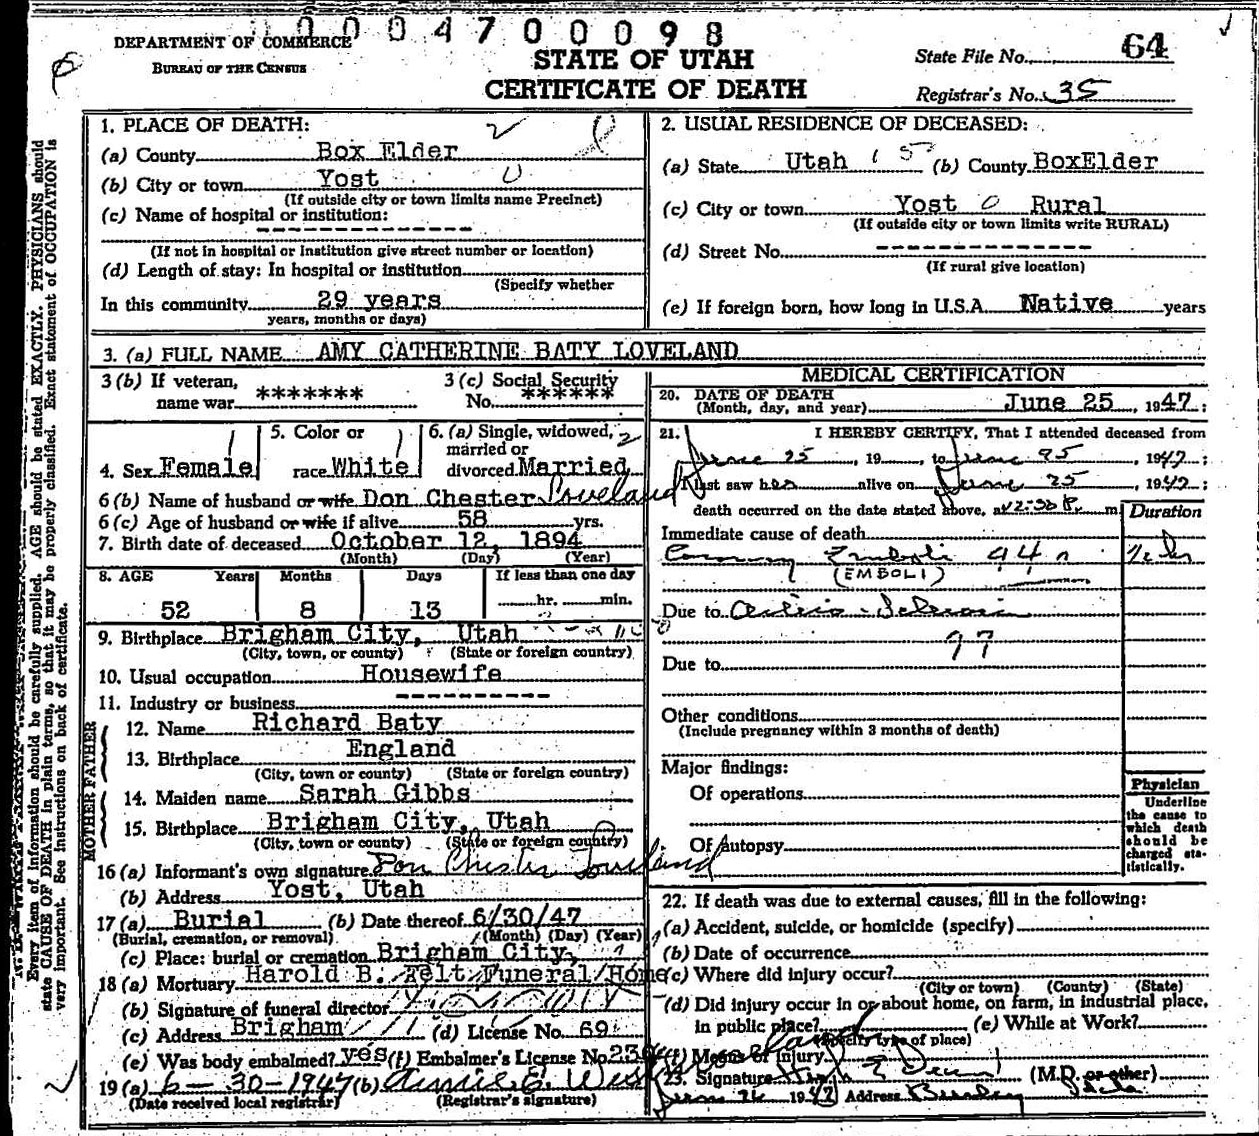 0004700098
DEPARTMENT OF COMMERCE
BUREAU OF THE CENSUS
STATE OF UTAH
CERTIFICATE OF DEATH
State File No. 64
Registrar's No. 35
Every item of information should be carefully supplied. AGE should be stated EXACTLY. PHYSICIANS should
state CAUSE OF DEATH in plain terms, so that it may be properly classified. Exact statement of OCCUPATION is
very important. See instructions on back of certificate.
1. PLACE OF DEATH:
(a) County Box Elder
(b) City or town Yost
(If outside city or town limits name Precinct)
(c) Name of hospital or institution:
(If not in hospital or institution give street number or location)
(d) Length of stay: In hospital or institution
(Specify whether
In this community 29 years
years, months or days)
2. USUAL RESIDENCE OF DECEASED:
(a) State Utah (b) County BoxElder
(c) City or town Yost Rural
(If outside city or town limits write RURAL)
(d) Street No.
(If rural give location)
(e) If foreign born, how long in U.S.A. Native years
3. (a) FULL NAME AMY CATHERINE BATY LOVELAND
3 (b) If veteran, name war *******
3 (c) Social Security No. ******
4. Sex Female
5. Color or race White
6. (a) Single, widowed, married or divorced Married
6 (b) Name of husband or wife Don Chester Loveland
6 (c) Age of husband or wife if alive 58 yrs.
7. Birth date of deceased October 12, 1894
(Month) (Day) (Year)
8. AGE Years Months Days If less than one day
52 8 13 hr. min.
9. Birthplace Brigham City, Utah
(City, town, or county) (State or foreign country)
10. Usual occupation Housewife
11. Industry or business
FATHER
12. Name Richard Baty
13. Birthplace England
(City, town or county) (State or foreign country)
MOTHER
14. Maiden name Sarah Gibbs
15. Birthplace Brigham City, Utah
(City, town or county) (State or foreign country)
16 (a) Informant's own signature Don Chester Loveland
(b) Address Yost, Utah
17 (a) Burial (b) Date thereof 6/30/47
(Burial, cremation, or removal) (Month) (Day) (Year)
(c) Place: burial or cremation Brigham City,
18 (a) Mortuary Harold B. Felt Funeral Home
(b) Signature of funeral director
(c) Address Brigham (d) License No. 69
(e) Was body embalmed? yes (f) Embalmer's License No.
19 (a) 6-30-1947 (b) Annie E.
(Date received local registrar) (Registrar's signature)
MEDICAL CERTIFICATION
20. DATE OF DEATH
(Month, day, and year) June 25, 1947;
21. I HEREBY CERTIFY, That I attended deceased from
June 25, 19 , to June 25, 1947;
I last saw her alive on June 25, 1947;
death occurred on the date stated above, at 2:30 P. m.
Duration
Immediate cause of death
Coronary Emboli 94a
(EMBOLI)
Due to
97
Due to
Other conditions
(Include pregnancy within 3 months of death)
Major findings:
Of operations
Of autopsy
Physician
Underline
the cause to
which death
should be
charged sta-
tistically.
22. If death was due to external causes, fill in the following:
(a) Accident, suicide, or homicide (specify)
(b) Date of occurrence
(c) Where did injury occur?
(City or town) (County) (State)
(d) Did injury occur in or about home, on farm, in industrial place,
in public place? (e) While at Work?
(Specify type of place)
(f) Means of injury
23. Signature (M.D. or other)
June 26 1947 Address Burley